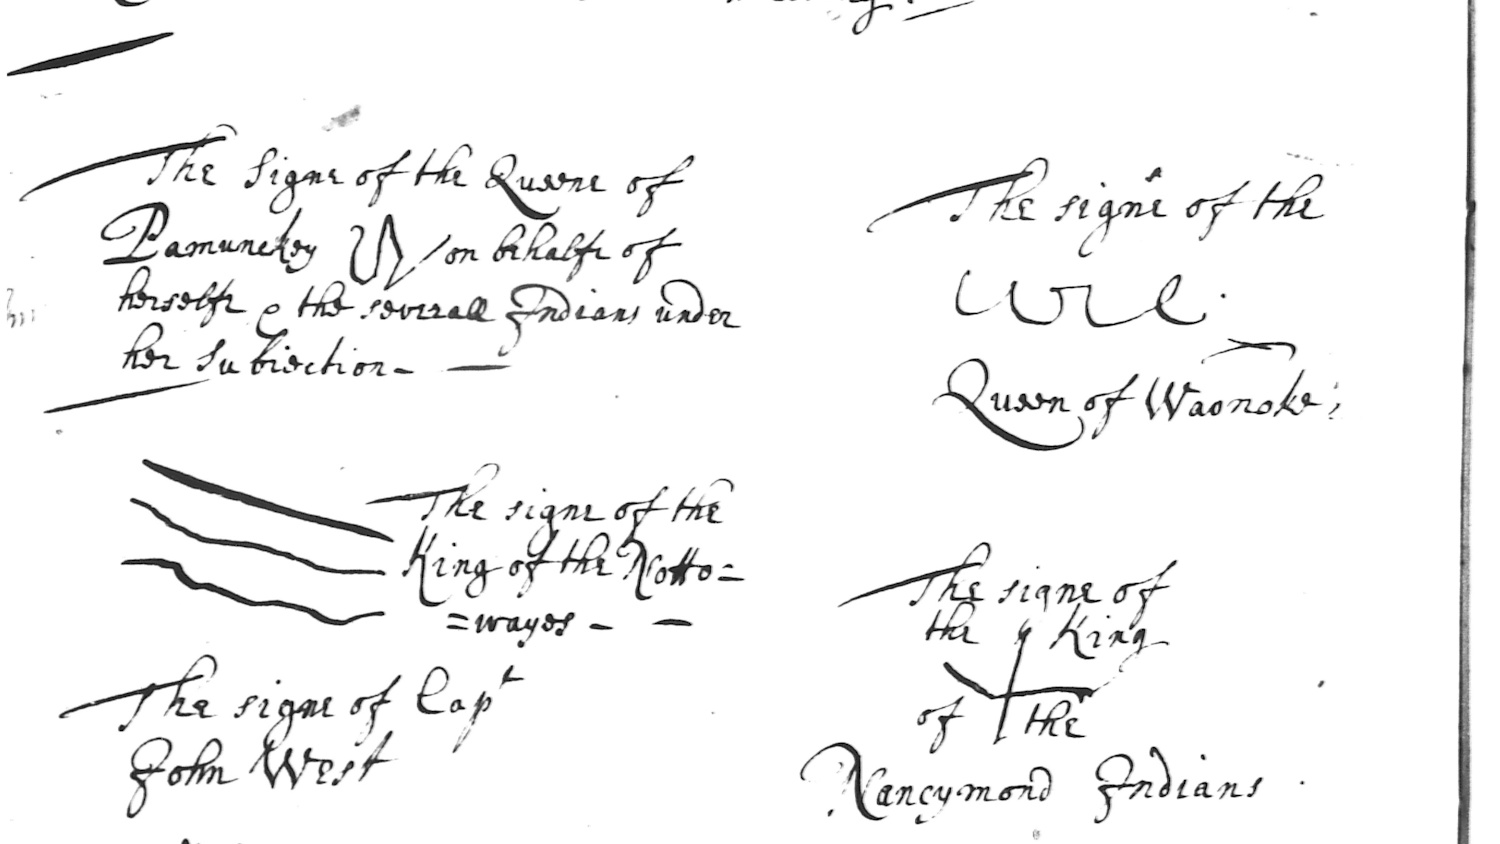 The Signe of the Queene of
Pamunckey on behalfe of
herselfe & the severall Indians under
her Subiection -
The signe of the
King of the Notto=
=wayes -
The signe of Capt
John West
The signe of the
Queen of Waonoke;
The signe of
the King
of the
Nancymond Indians